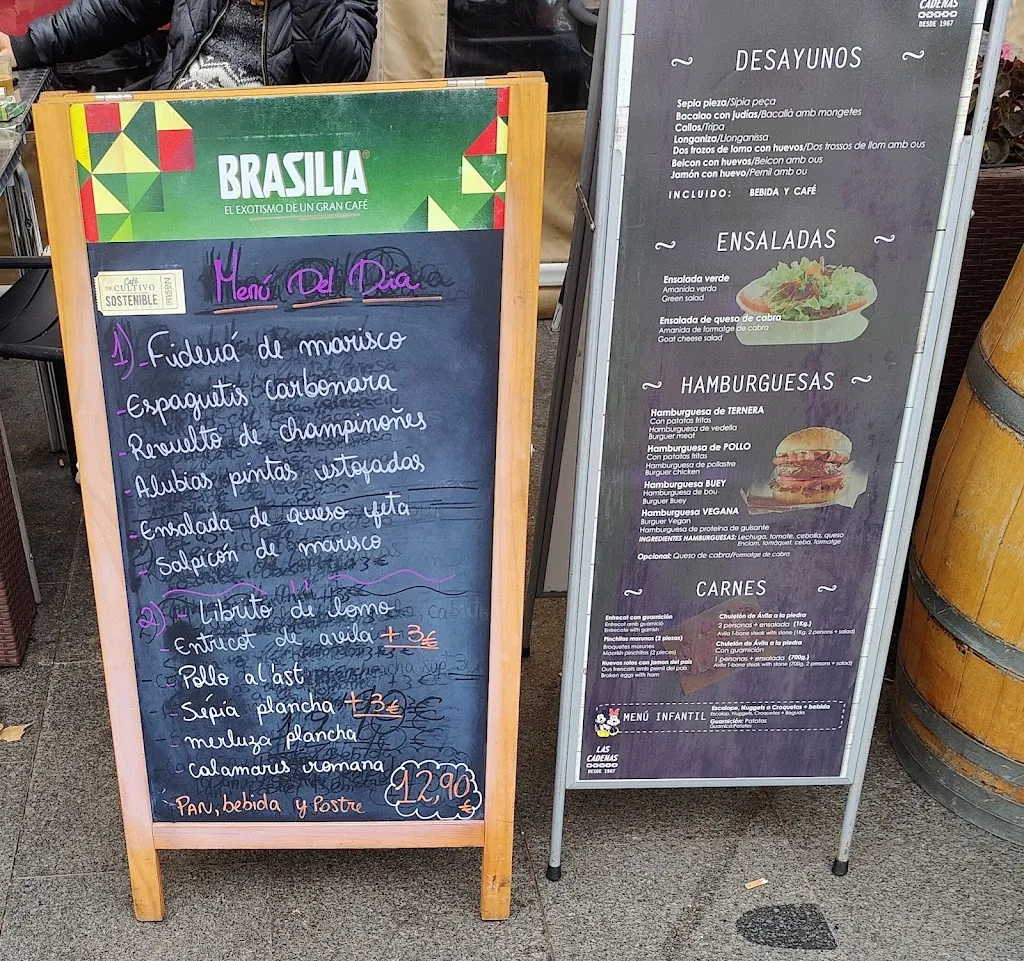 BRASILIA
EL EXOTISMO DE UN GRAN CAFÉ
Café
DE CULTIVO
SOSTENIBLE
Menú Del Dia
1) - Fideuá de marisco
- Espaguetis carbonara
- Revuelto de champinoñes
- Alubias pintas estofadas
- Ensalada de queso feta
- Salpicón de marisco
2) - Librito de lomo
- Entricot de avila + 3€
- Pollo al'ást
- Sépia plancha + 3€
- merluza plancha
- calamares romana
- PAN, bebida y Postre
12,90 €
CADENAS
DESDE 1967
~ DESAYUNOS ~
Sepia pieza/Sipia peça
Bacalao con judías/Bacallà amb mongetes
Callos/Tripa
Longaniza/Llonganissa
Dos trozos de lomo con huevos/Dos trossos de llom amb ous
Beicon con huevos/Beicon amb ous
Jamón con huevo/Pernil amb ou
INCLUIDO: BEBIDA Y CAFÉ
~ ENSALADAS ~
Ensalada verde
Amanida verda
Green salad
Ensalada de queso de cabra
Amanida de formatge de cabra
Goat cheese salad
~ HAMBURGUESAS ~
Hamburguesa de TERNERA
Con patatas fritas
Hamburguesa de vedella
Burguer meat
Hamburguesa de POLLO
Con patatas fritas
Hamburguesa de pollastre
Burguer chicken
Hamburguesa BUEY
Hamburguesa de bou
Burguer Buey
Hamburguesa VEGANA
Burguer Vegan
Hamburguesa de proteina de guisante
INGREDIENTES HAMBURGUESAS: Lechuga, tomate, cebolla, queso
Enciam, tomàquet, ceba, formatge
Opcional: Queso de cabra/Formatge de cabra
~ CARNES ~
Entrecot con guarnición
Entrecot amb guarnició
Entrecote with garnish
Pinchitos morunos (2 piezas)
Broquetes morunes
Moorish pinchitos (2 pieces)
Huevos rotos con jamon del pais
Ous trencats amb pernil del pais
Broken eggs with ham
Chuletón de Ávila a la piedra
2 personas + ensalada (1Kg.)
Avila T-bone steak with stone (1Kg, 2 persons + salad)
Chuletón de Ávila a la piedra
Con guarnición
1 personas + ensalada (700g.)
Avila T-bone steak with stone (700g, 2 persons + salad)
MENÚ INFANTIL
Escalope, Nuggets o Croquetas + bebida
Escalop, Nuggets, Croquetes + Beguda
Guarnición: Patatas
Guarnició:Patates
LAS
CADENAS
DESDE 1967